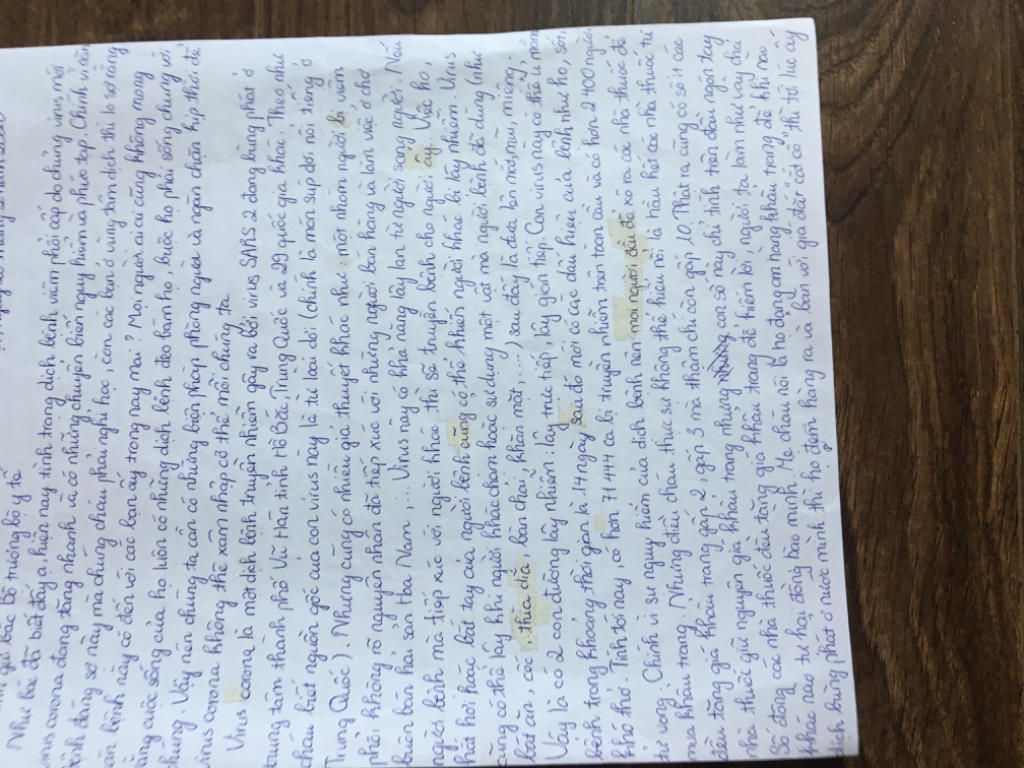 Như bác đã biết đấy ạ, hiện nay tình trạng dịch bệnh viêm phổi cấp do chủng virus mới
virus corona đang tăng nhanh và có những chuyển biến nguy hiểm và phức tạp. Chính vì căn
bệnh đáng sợ này mà chúng cháu phải nghỉ học, còn các bạn ở vùng tâm dịch thì lo sợ rằng
căn bệnh này có đến với các bạn ấy trong nay mai? Mọi người ai ai cũng không mong
rằng cuộc sống của họ luôn có những dịch bệnh đeo bám họ, buộc họ phải sống chung với
chúng. Vậy nên chúng ta cần có những biện pháp phòng ngừa và ngăn chặn kịp thời để
virus corona không thể xâm nhập cơ thể mỗi chúng ta.
Virus corona là một dịch bệnh truyền nhiễm gây ra bởi virus SARS 2 đang bùng phát ở
trung tâm thành phố Vũ Hán tỉnh Hồ Bắc, Trung Quốc và 29 quốc gia khác. Theo như
cháu biết nguồn gốc của con virus này là từ loài dơi (chính là món súp dơi nổi tiếng ở
Trung Quốc). Nhưng cũng có nhiều giả thuyết khác như: một nhóm người bị viêm
phổi không rõ nguyên nhân đã tiếp xúc với những người bán hàng và làm việc ở chợ
buôn bán hải sản Hoa Nam,... Virus này có khả năng lây lan từ người sang người. Nếu
người bệnh mà tiếp xúc với người khoẻ thì sẽ truyền bệnh cho người ấy. Việc ho,
hắt hơi hoặc bắt tay của người bệnh cũng có thể khiến người khác bị lây nhiễm. Virus
cũng có thể lây khi người khác chạm hoặc sử dụng một vật mà người bệnh đã dùng (như
bát ăn, cốc, thìa dĩa, bàn chải, khăn mặt,...), sau đấy là đưa lên mắt, mũi, miệng.
Vậy là có 2 con đường lây nhiễm: lây trực tiếp, lây gián tiếp. Con virus này có thể ủ mầm
bệnh trong khoảng thời gian là 14 ngày sau đó mới có các dấu hiệu của bệnh như ho, sốt,
khó thở. Tính tới nay, có hơn 71 444 ca bị truyền nhiễm trên toàn cầu và có hơn 2 400 người
tử vong.
Chính vì sự nguy hiểm của dịch bệnh nên mọi người đều đổ xô ra các nhà thuốc để
mua khẩu trang. Nhưng điều cháu thực sự không thể hiểu nổi là hầu hết các nhà thuốc tư
đều tăng giá khẩu trang gấp 2, gấp 3 mà thậm chí còn gấp 10. Thật ra cũng có số ít các
nhà thuốc giữ nguyên giá khẩu trang nhưng con số này chỉ tính trên đầu ngón tay.
Số đông các nhà thuốc đều tăng giá khẩu trang để kiếm lời, người ta làm như vậy chả
khác nào tự hại đồng bào mình. Mẹ cháu nói là họ đang ôm hàng khẩu trang để khi nào
dịch bùng phát ở nước mình thì họ đem hàng ra và bán với giá đắt "cắt cổ", thì tới lúc ấy